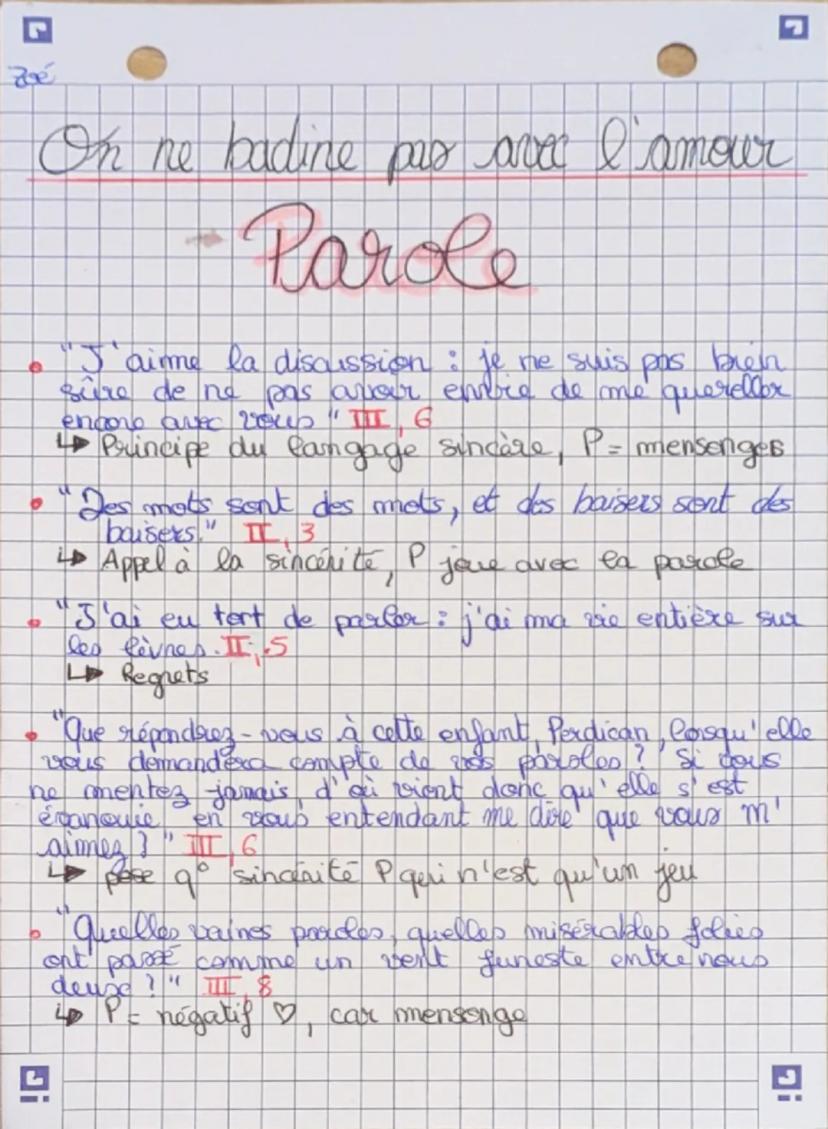 Zoé
On ne badine pas avec l'amour
Parole
• "J'aime la discussion : je ne suis pas bien
sûre de ne pas avoir envie de me quereller
encore avec vous" III, 6
↳ Principe du langage sincère, P = mensonges
• "Des mots sont des mots, et des baisers sont des
baisers." II, 3
↳ Appel à la sincérité, P joue avec la parole
• "J'ai eu tort de parler : j'ai ma vie entière sur
les lèvres. II, 5
↳ Regrets
• "Que répondrez-vous à cette enfant, Perdican, lorsqu'elle
vous demandera compte de vos paroles ? Si vous
ne mentez jamais, d'où vient donc qu'elle s'est
évanouie en vous entendant me dire que vous m'
aimez ? " III, 6
↳ pose q° sincérité P qui n'est qu'un jeu
• "Quelles vaines paroles, quelles misérables folies
ont passé comme un vent funeste entre nous
deux ?" III, 8
↳ P = négatif ♡, car mensonge